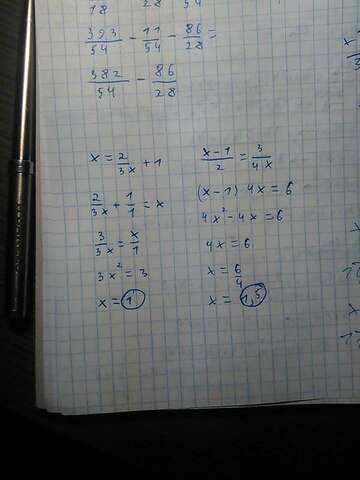 18 28 54
393/54 - 11/54 - 86/28 =
382/54 - 86/28
x = 2/3x + 1
2/3x + 1/1 = x
3/3x = x/1
3x² = 3
x = 1
x-1/2 = 3/4x
(x-1) 4x = 6
4x² - 4x = 6
4x = 6
x = 6/4
x = 1,5